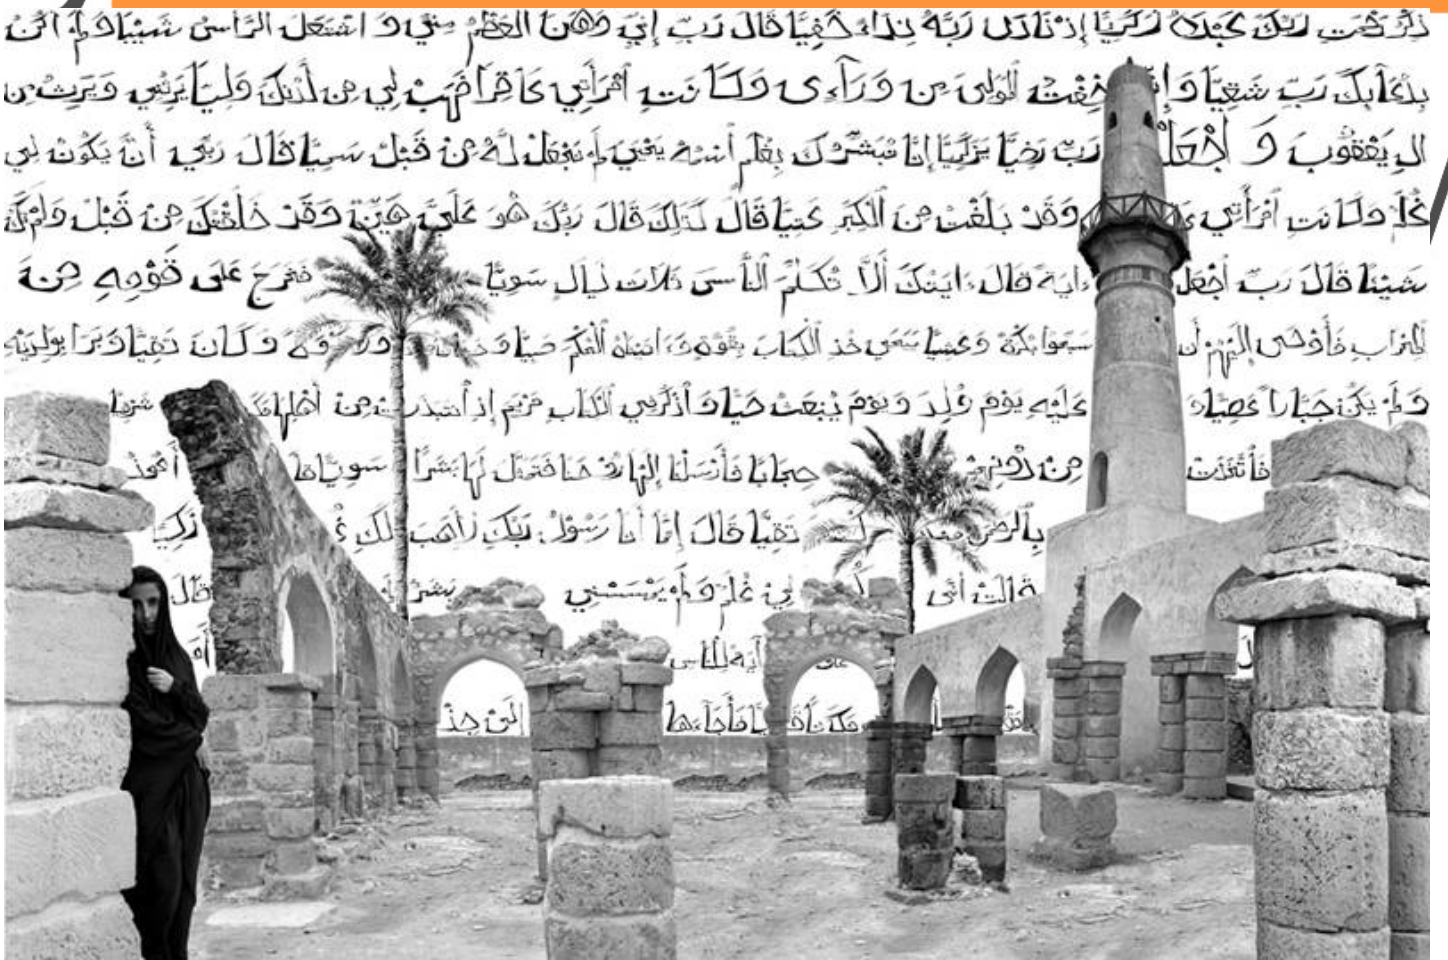 ذكر رحمت ربك عبده زكريا إذ نادى ربه نداء خفيا قال رب إني وهن العظم مني و اشتعل الرأس شيبا ولم أكن
بدعائك رب شقيا و خفت المولى من وراءى وكانت امرأتي عاقرا فهب لي من لدنك وليا يرثني ويرث من
ال يعقوب و اجعل رب رضيا يزكريا إنا نبشرك بغلم اسمه يحيى لم نجعل له من قبل سميا قال ربي أن يكون لي
غلم وكانت امرأتي وقد بلغت من الكبر عتيا قال كذلك قال ربك هو على هين وقد خلقتك من قبل ولم تك
شيئا قال رب اجعل ءاية قال ءايتك ألا تكلم الناس ثلاث ليال سويا فخرج على قومه من
المحراب فأوحى إليهم أن سبحوا بكرة وعشيا ييحي خذ الكتاب بقوة وءاتيناه الحكم صبيا وكان تقيا وبرا بولديه
ولم يكن جبارا عصيا و عليه يوم ولد ويوم يبعث حيا واذكر في الكتاب مريم إذ انتبذت من أهلها شرقيا
فاتخذت من دونهم حجابا فأرسلنا إليها روحنا فتمثل لها بشرا سويا أعوذ
بالرحمن تقيا قال إنما أنا رسول ربك لأهب لك زكيا
قالت أنى لي غلم ولم يمسسني بشر قال
ءاية للناس
فأجاءها إلى جذ